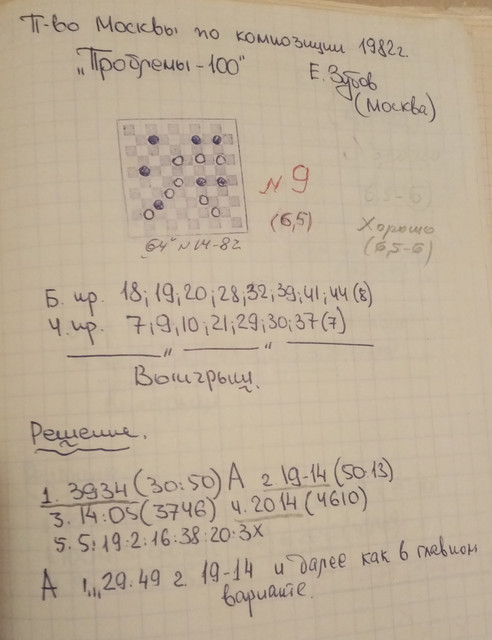 П-во Москвы по композиции 1982г.
„Проблемы-100" Е. Зубов
(Москва)
№ 9
(6,5)
Хорошо
(6,5-6)
„64" № 14-82
Б. пр. 18; 19; 20; 28; 32; 39; 41; 44 (8)
Ч. пр. 7; 9; 10; 21; 29; 30; 37 (7)
Выигрыш.
Решение.
1. 3934 (30:50) А 2. 19-14 (50:13)
3. 14:05 (3746) 4. 2014 (4610)
5. 5:19:2:16:38:20:3X
А 1... 29:49 2. 19-14 и далее как в главном
варианте.